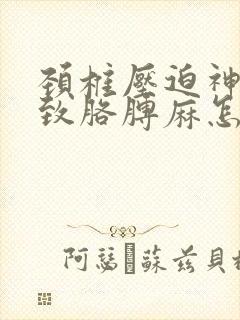 頚椎壓迫神
致胳膊麻怎
阿瑟·蘇茲貝